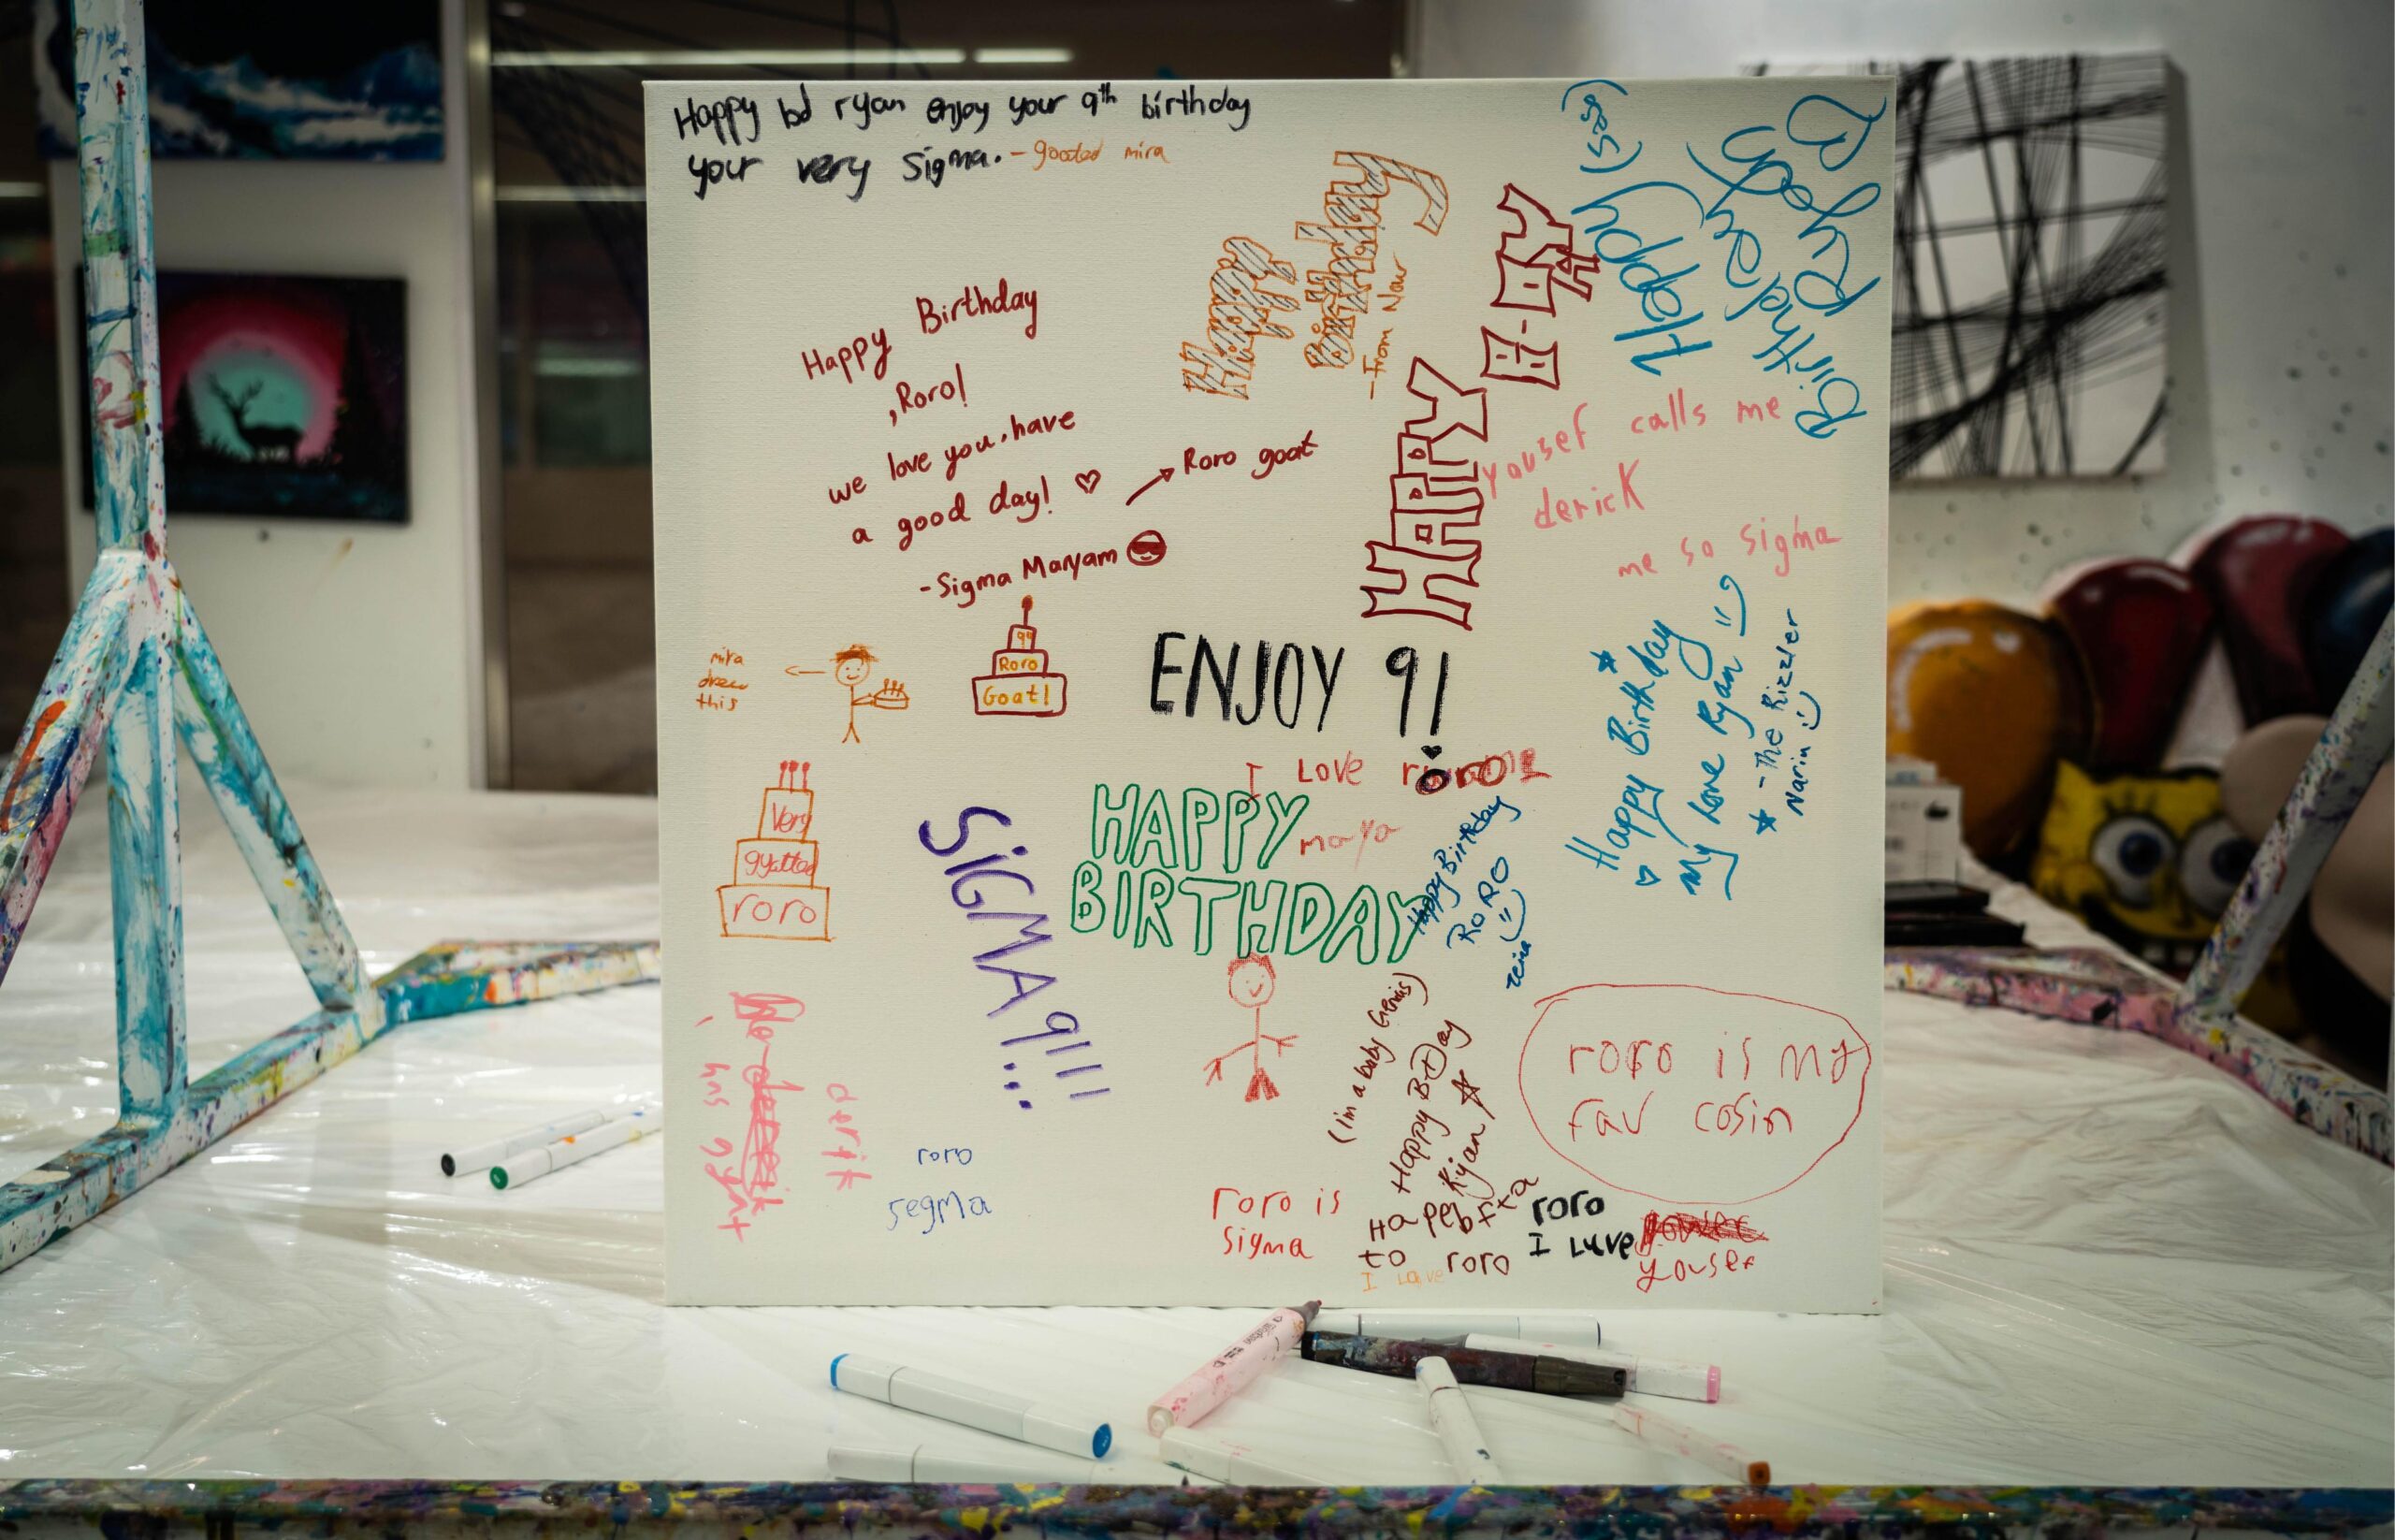 Happy bd ryan enjoy your 9th birthday
your very sigma.
- gooded mira
Happy
Birthday
- From Nour
HAPPY
B-DAY
Happy
Birthday
Happy Birthday
,Roro!
we love you, have
a good day! ♡
- Sigma Maryam
Roro goat
yousef calls me
derick
me so sigma
mira
drew
this
99
Roro
Goat!
ENJOY 9!
Happy Birthday
My love Ryan
- The Rizzler
Narin
I LOVE
roro
very
gyatted
roro
SIGMA 9!!!
HAPPY
BIRTHDAY
maya
Happy Birthday
RORO
zeina
derik
has gyat
roro
segma
(im a baby
Happy B-Day
Ryan
roro is my
fav cosin
roro is
sigma
to roro
roro
I luve
yousef